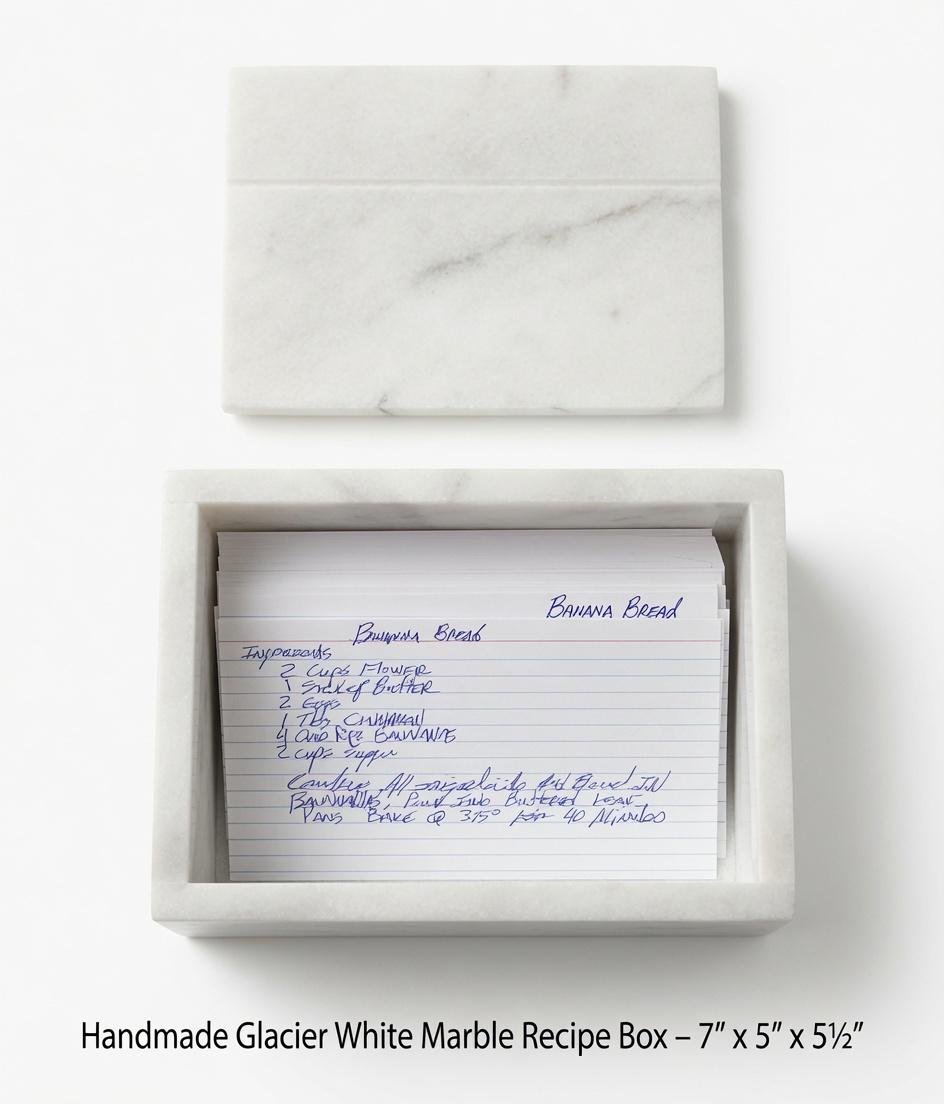 Banana Bread
Banana Bread
Ingredients
2 Cups Flower
1 Stick of Butter
2 Eggs
1 Tbs Cinnamon
4 Ripe
2 Cups
All And In
, Pour Into Buttered
Pans Bake @ 375° For 40
Handmade Glacier White Marble Recipe Box – 7” x 5” x 5½”